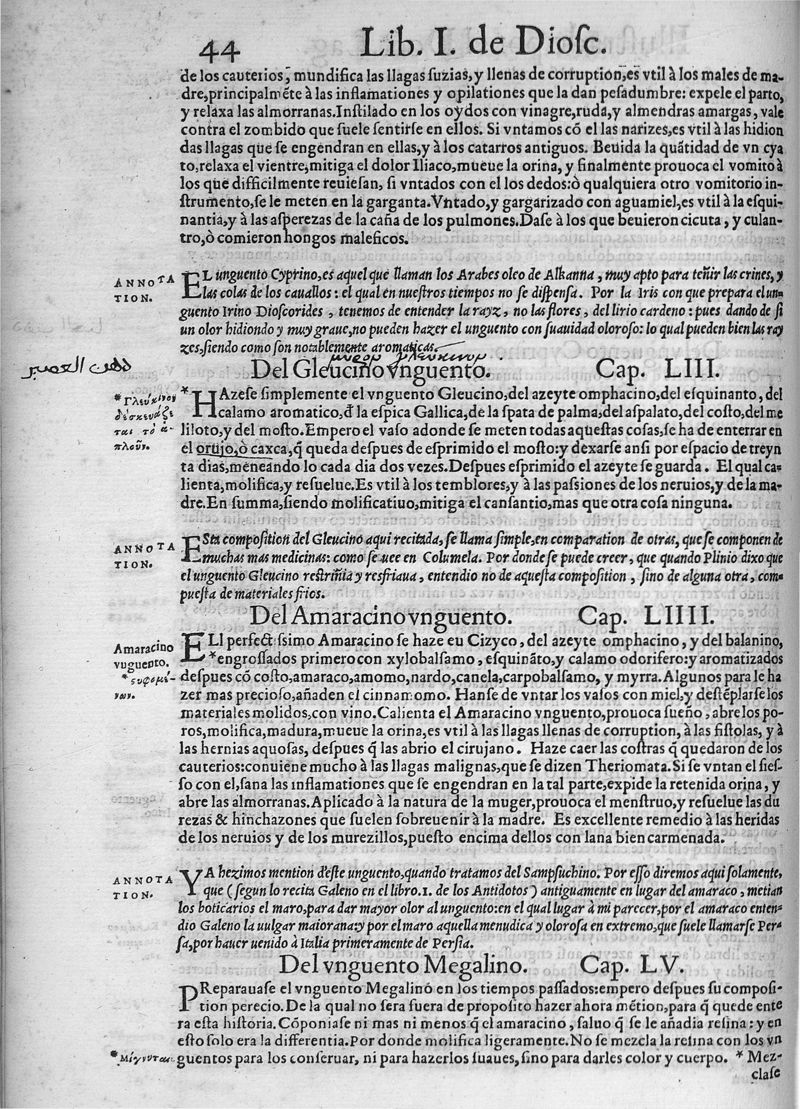 44 Lib. I. de Dioſc.
de los cauterios, mundifica las llagas ſuzias, y llenas de corruption, es vtil à los males de ma-
dre, principalmẽte à las inflamationes y opilationes que la dan peſadumbre: expele el parto,
y relaxa las almorranas. Inſtilado en los oydos con vinagre, ruda, y almendras amargas, vale
contra el zombido que ſuele ſentirſe en ellos. Si vntamos cõ el las narizes, es vtil à las hidion
das llagas que ſe engendran en ellas, y à los catarros antiguos. Beuida la quãtidad de vn cya
to, relaxa el vientre, mitiga el dolor Iliaco, mueue la orina, y finalmente prouoca el vomito à
los que difficilmente reuieſan, ſi vntados con el los dedos: ò qualquiera otro vomitorio in-
ſtrumento, ſe le meten en la garganta. Vntado, y gargarizado con aguamiel, es vtil à la eſqui-
nantia, y à las aſperezas de la caña de los pulmones. Daſe à los que beuieron cicuta, y culan-
tro, ò comieron hongos maleficos.
ANNOTA
TION.
EL unguento Cyprino, es aquel que llaman los Arabes oleo de Alkanna, muy apto para teñir las crines, y
las colas de los cauallos: el qual en nueſtros tiempos no ſe diſpenſa. Por la Iris con que prepara el un-
guento Irino Dioſcorides, tenemos de entender la rayz, no las flores, del lirio cardeno: pues dando de ſi
un olor hidiondo y muy graue, no pueden hazer el unguento con ſuauidad oloroſo: lo qual pueden bien las ray
zes, ſiendo como ſon notablemente aromaticas.
دهن العصير
Del Gleucino vnguento. Cap. LIII.
* Γλεύκινον
δὲ σκευάζε
ται τὸ ἁ-
πλοῦν.
* HAzeſe ſimplemente el vnguento Gleucino, del azeyte omphacino, del eſquinanto, del
calamo aromatico, đ la eſpica Gallica, de la ſpata de palma, del aſpalato, del coſto, del me
liloto, y del moſto. Empero el vaſo adonde ſe meten todas aqueſtas coſas, ſe ha de enterrar en
el orujo, ò caxca, q̃ queda deſpues de eſprimido el moſto: y dexarſe anſi por eſpacio de treyn
ta dias, meneando lo cada dia dos vezes. Deſpues eſprimido el azeyte ſe guarda. El qual ca-
lienta, molifica, y reſuelue. Es vtil à los temblores, y à las paſſiones de los neruios, y de la ma-
dre. En ſumma, ſiendo molificatiuo, mitiga el canſantio, mas que otra coſa ninguna.
ANNOTA
TION.
ESta compoſition del Gleucino aqui recitada, ſe llama ſimple, en comparation de otras, que ſe componen de
muchas mas medicinas: como ſe uee en Columela. Por donde ſe puede creer, que quando Plinio dixo que
el unguento Gleucino reſtriñia y resfriaua, entendio no de aqueſta compoſition, ſino de alguna otra, com-
pueſta de materiales frios.
Del Amaracino vnguento. Cap. LIIII.
Amaracino
vnguento.
ELl perfectiſsimo Amaracino ſe haze eu Cizyco, del azeyte omphacino, y del balanino,
*engroſſados primero con xylobalſamo, eſquinãto, y calamo odorifero: y aromatizados
deſpues cõ coſto, amaraco, amomo, nardo, canela, carpobalſamo, y myrra. Algunos para le ha
zer mas precioſo, añaden el cinnamomo. Hanſe de vntar los vaſos con miel, y deſtẽplarſe los
materiales molidos, con vino. Calienta el Amaracino vnguento, prouoca ſueño, abre los po-
ros, molifica, madura, mueue la orina, es vtil à las llagas llenas de corruption, à las fiſtolas, y à
las hernias aquoſas, deſpues q̃ las abrio el cirujano. Haze caer las coſtras q̃ quedaron de los
cauterios: conuiene mucho à las llagas malignas, que ſe dizen Theriomata. Si ſe vntan el ſieſ-
ſo con el, ſana las inflamationes que ſe engendran en la tal parte, expide la retenida orina, y
abre las almorranas. Aplicado à la natura de la muger, prouoca el menſtruo, y reſuelue las du
rezas & hinchazones que ſuelen ſobreuenir à la madre. Es excellente remedio à las heridas
de los neruios y de los murezillos, pueſto encima dellos con lana bien carmenada.
ANNOTA
TION.
YA hezimos mention d'eſte unguento, quando tratamos del Sampſuchino. Por eſſo diremos aqui ſolamente,
que (ſegun lo recita Galeno en el libro. 1. de los Antidotos) antiguamente en lugar del amaraco, metian
los boticarios el maro, para dar mayor olor al unguento: en el qual lugar à mi parecer, por el amaraco enten-
dio Galeno la uulgar maiorana: y por el maro aquella menudica y oloroſa en extremo, que ſuele llamarſe Per-
ſa, por hauer uenido à Italia primeramente de Perſia.
Del vnguento Megalino. Cap. LV.
PReparauaſe el vnguento Megalino en los tiempos paſſados: empero deſpues ſu compoſi-
tion perecio. De la qual no ſera fuera de propoſito hazer ahora mẽtion, para q̃ quede ente
ra eſta hiſtoria. Cõponiaſe ni mas ni menos q̃ el amaracino, ſaluo q̃ ſe le añadia reſina: y en
eſto ſolo era la differentia. Por donde molifica ligeramente. No ſe mezcla la reſina con los vn
*Μίγνυται
guentos para los conſeruar, ni para hazerlos ſuaues, ſino para darles color y cuerpo. * Mez-
claſe